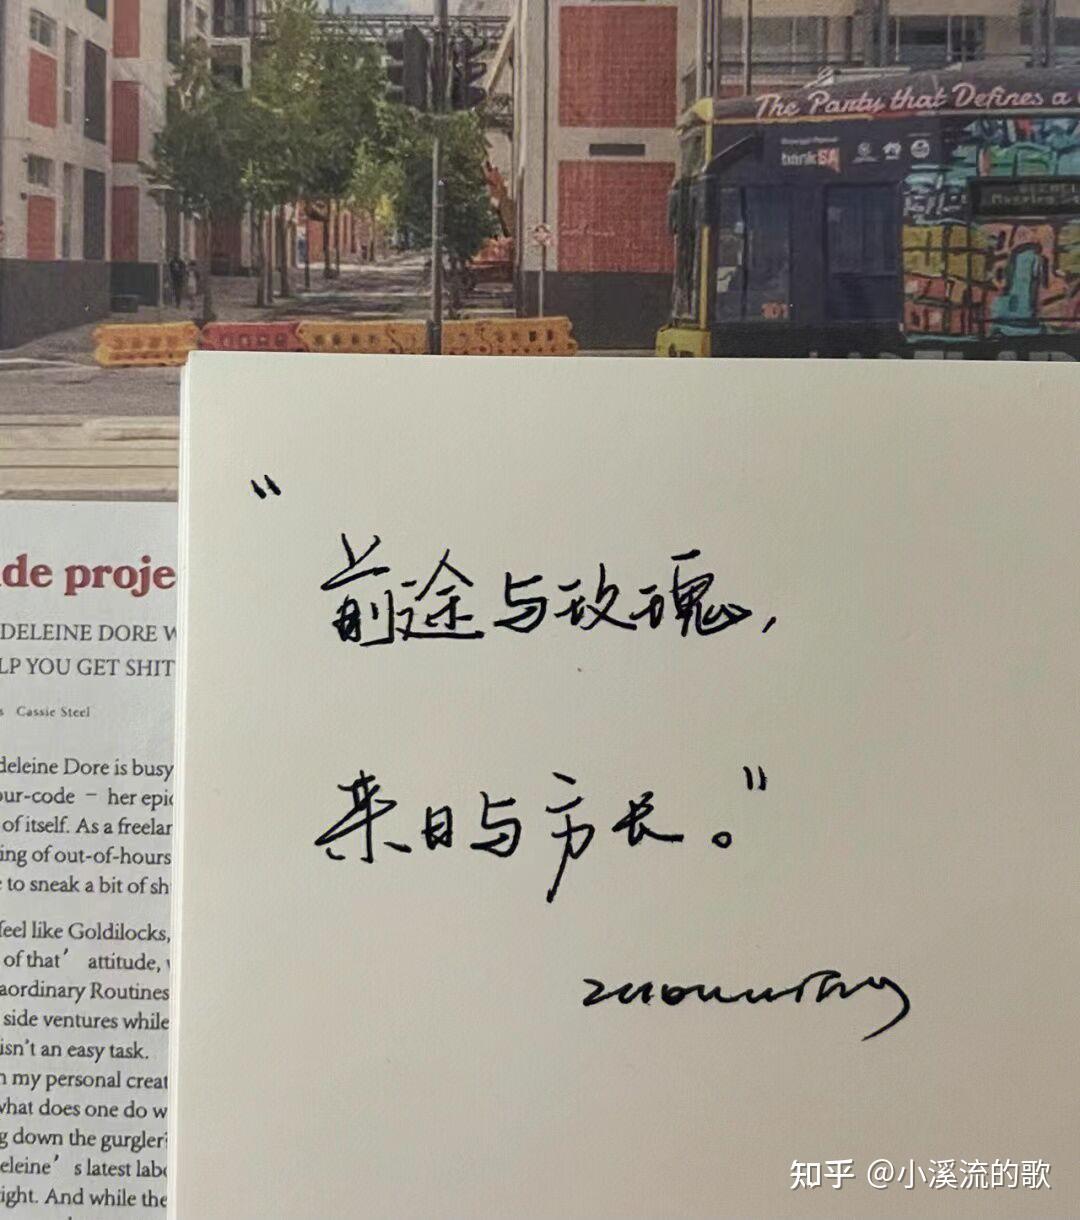 The Party that Defines a
bankSA
101
"
前途与玫瑰,
来日与方长。"
de proje
DELEINE DORE W
LP YOU GET SHIT
s Cassie Steel
deleine Dore is busy
our-code – her epic
of itself. As a freelar
ing of out-of-hours
to sneak a bit of sh
feel like Goldilocks,
of that' attitude,
aordinary Routines
side ventures while
isn't an easy task.
n my personal creat
what does one do w
g down the gurgler?
eleine's latest labo
ight. And while the
知乎 @小溪流的歌